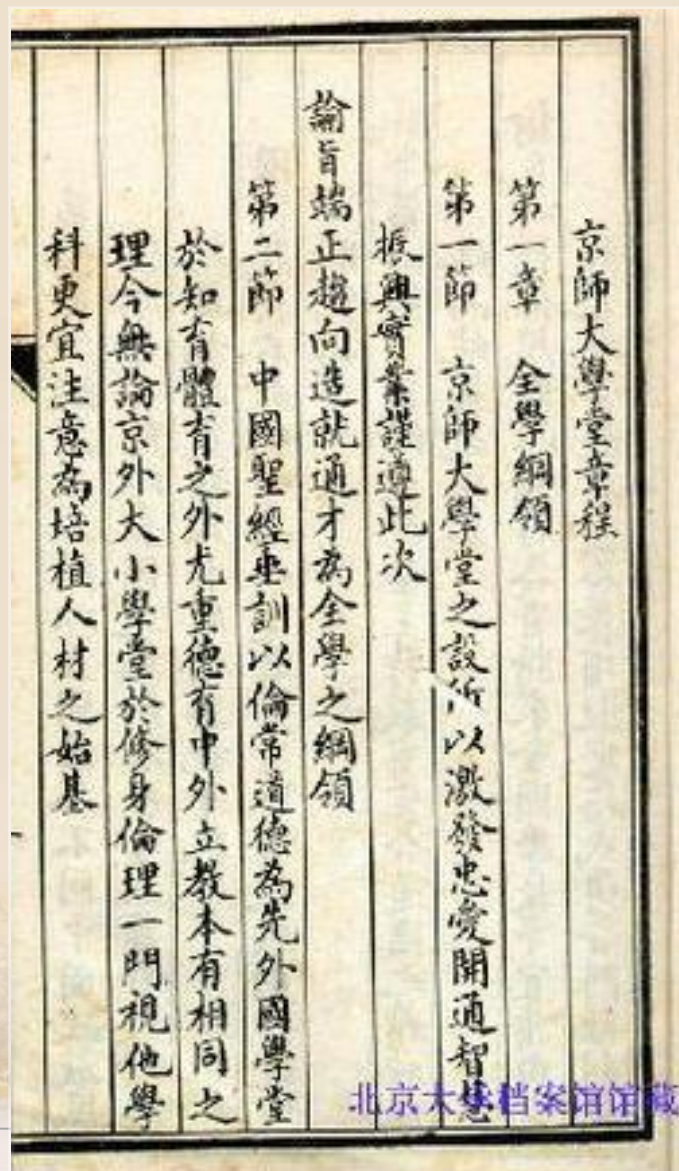 京師大學堂章程
第一章　全學綱領
第一節　京師大學堂之設所以激發忠愛開通智慧
振興實業謹遵此次
諭旨端正趨向造就通才為全學之綱領
第二節　中國聖經垂訓以倫常道德為先外國學堂
於知育體育之外尤重德育中外立教本有相同之
理今無論京外大小學堂於修身倫理一門視他學
科更宜注意為培植人材之始基
北京大学档案馆馆藏